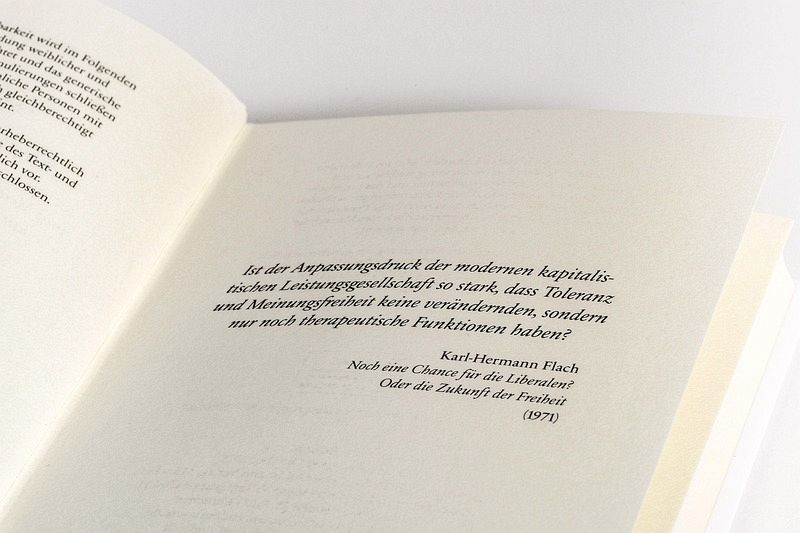 barkeit wird im Folgenden
dung weiblicher und
htet und das generische
nulierungen schließen
nliche Personen mit
gleichberechtigt
nt.
rheberrechtlich
e des Text- und
lich vor.
schlossen.
Ist der Anpassungsdruck der modernen kapitalis-
tischen Leistungsgesellschaft so stark, dass Toleranz
und Meinungsfreiheit keine verändernden, sondern
nur noch therapeutische Funktionen haben?
Karl-Hermann Flach
Noch eine Chance für die Liberalen?
Oder die Zukunft der Freiheit
(1971)